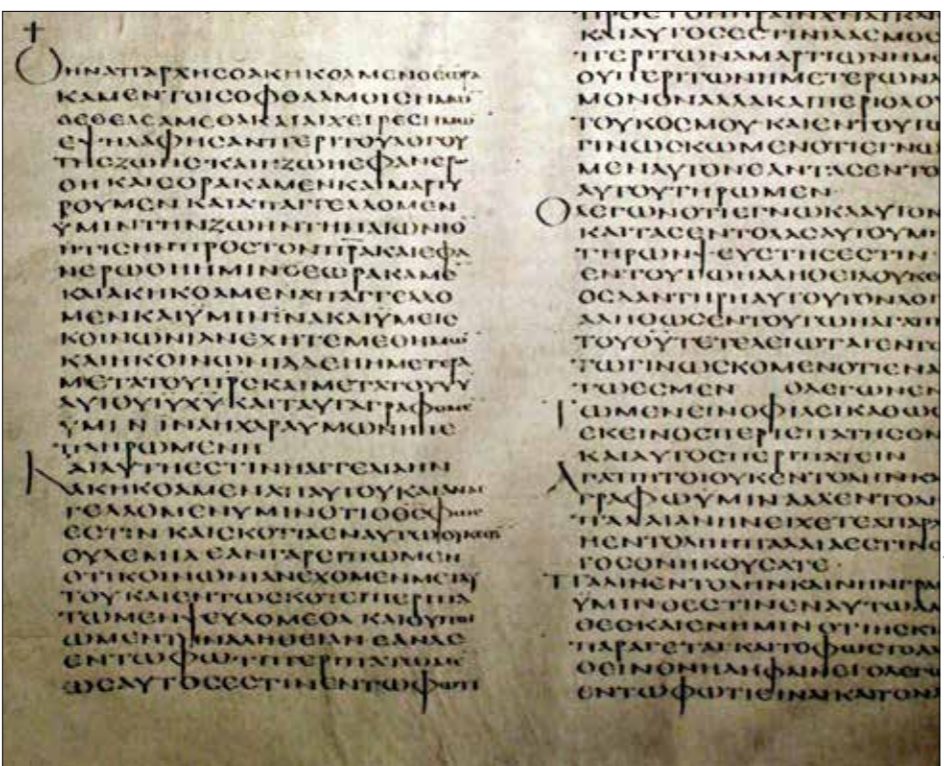 †
ΟΗΝΑΠΑΡΧΗϹΟΑΚΗΚΟΑΜΕΝΟΕΩΡΑ
ΚΑΜΕΝΤΟΙϹΟΦΘΑΛΜΟΙϹΗΜΩ̅
ΟΕΘΕΑϹΑΜΕΘΑΚΑΙΑΙΧΕΙΡΕϹΗΜΩ̅
ΕΨΗΛΑΦΗϹΑΝΠΕΡΙΤΟΥΛΟΓΟΥ
ΤΗϹΖΩΗϹΚΑΙΗΖΩΗΕΦΑΝΕΡ
ΘΗΚΑΙΕΟΡΑΚΑΜΕΝΚΑΙΜΑΡΤΥ
ΡΟΥΜΕΝΚΑΙΑΠΑΓΓΕΛΛΟΜΕΝ
ΥΜΙΝΤΗΝΖΩΗΝΤΗΝΑΙΩΝΙΟ̅
ΗΤΙϹΗΝΠΡΟϹΤΟΝΠ̅Ρ̅Α̅ΚΑΙΕΦΑ
ΝΕΡΩΘΗΗΜΙΝΟΕΩΡΑΚΑΜΕ̅
ΚΑΙΑΚΗΚΟΑΜΕΝΑΠΑΓΓΕΛΛΟ
ΜΕΝΚΑΙΥΜΙΝΪΝΑΚΑΙΥΜΕΙϹ
ΚΟΙΝΩΝΙΑΝΕΧΗΤΕΜΕΘΗΜΩ̅
ΚΑΙΗΚΟΙΝΩΝΙΑΔΕΗΗΜΕΤΕΡΑ
ΜΕΤΑΤΟΥΠ̅Ρ̅Ϲ̅ΚΑΙΜΕΤΑΤΟΥΥ̅Υ̅
ΑΥΤΟΥΙ̅Υ̅Χ̅Υ̅ΚΑΙΤΑΥΤΑΓΡΑΦΟΜΕ̅
ΥΜΙΝΙΝΑΗΧΑΡΑΥΜΩΝΗΠΕ
ΠΛΗΡΩΜΕΝΗ
ΚΑΙΑΥΤΗΕϹΤΙΝΗΑΓΓΕΛΙΑΗΝ
ΑΚΗΚΟΑΜΕΝΑΠΑΥΤΟΥΚΑΙΑΝΑΓ
ΓΕΛΛΟΜΕΝΥΜΙΝΟΤΙΟΘ̅Ϲ̅ΦΩϹ
ΕϹΤΙΝΚΑΙϹΚΟΤΙΑΕΝΑΥΤΩΟΥΚΕϹΤΙ̅
ΟΥΔΕΜΙΑΕΑΝΓΑΡΕΙΠΩΜΕΝ
ΟΤΙΚΟΙΝΩΝΙΑΝΕΧΟΜΕΝΜΕΤΑΥ
ΤΟΥΚΑΙΕΝΤΩϹΚΟΤΕΙΠΕΡΙΠΑ
ΤΩΜΕΝΨΕΥΔΟΜΕΘΑΚΑΙΟΥΠΟΙ
ΩΜΕΝΤΗΝΑΛΗΘΕΙΑΝΕΑΝΔΕ
ΕΝΤΩΦΩΤΙΠΕΡΙΠΑΤΩΜΕ̅
ΩϹΑΥΤΟϹΕϹΤΙΝΕΝΤΩΦΩΤΙ
ΚΑΙΑΥΤΟϹΕϹΤΙΝΙΛΑϹΜΟϹ
ΠΕΡΙΤΩΝΑΜΑΡΤΙΩΝΗΜ
ΟΥΠΕΡΙΤΩΝΗΜΕΤΕΡΩΝΔ
ΜΟΝΟΝΑΛΛΑΚΑΙΠΕΡΙΟΛΟΥ
ΤΟΥΚΟϹΜΟΥΚΑΙΕΝΤΟΥΤΩ
ΓΙΝΩϹΚΩΜΕΝΟΤΙΕΓΝΩ
ΜΕΝΑΥΤΟΝΕΑΝΤΑϹΕΝΤΟ
ΑΥΤΟΥΤΗΡΩΜΕΝ·
ΟΛΕΓΩΝΟΤΙΕΓΝΩΚΑΑΥΤΟΝ
ΚΑΙΤΑϹΕΝΤΟΛΑϹΑΥΤΟΥΜΗ
ΤΗΡΩΝΨΕΥϹΤΗϹΕϹΤΙΝ·
ΕΝΤΟΥΤΩΗΑΛΗΘΕΙΑΟΥΚΕ
ΟϹΔΑΝΤΗΡΗΑΥΤΟΥΤΟΝΛΟΓ
ΑΛΗΘΩϹΕΝΤΟΥΤΩΗΑΓΑΠΗ
ΤΟΥΘ̅Υ̅ΤΕΤΕΛΕΙΩΤΑΙΕΝΤΟΥ
ΤΩΓΙΝΩϹΚΟΜΕΝΟΤΙΕΝΑ
ΤΩΕϹΜΕΝ ΟΛΕΓΩΝΕΝ
ΕΚΕΙΝΟϹΠΕΡΙΕΠΑΤΗϹΕΝ
ΚΑΙΑΥΤΟϹΠΕΡΙΠΑΤΕΙΝ
ΑΓΑΠΗΤΟΙΟΥΚΕΝΤΟΛΗΝΚΑ
ΓΡΑΦΩΥΜΙΝΑΛΛΕΝΤΟΛΗ
ΠΑΛΑΙΑΝΗΝΕΙΧΕΤΕΑΠΑΡΧ
ΗΕΝΤΟΛΗΗΠΑΛΑΙΑΕϹΤΙΝΟ
ΓΟϹΟΝΗΚΟΥϹΑΤΕ·
ΠΑΛΙΝΕΝΤΟΛΗΝΚΑΙΝΗΝΓΡΑ
ΥΜΙΝΟΕϹΤΙΝΕΝΑΥΤΩΑΛ
ΘΕϹΚΑΙΕΝΗΜΙΝΟΤΙΗϹΚΙ
ΠΑΡΑΓΕΤΑΙΚΑΙΤΟΦΩϹΤΟΑΛ
ΘΕΙΝΟΝΗΔΗΦΑΙΝΕΙΟΛΕΓΩ
ΕΝΤΩΦΩΤΙΕΙΝΑΙΚΑΙΤΟΝΑ